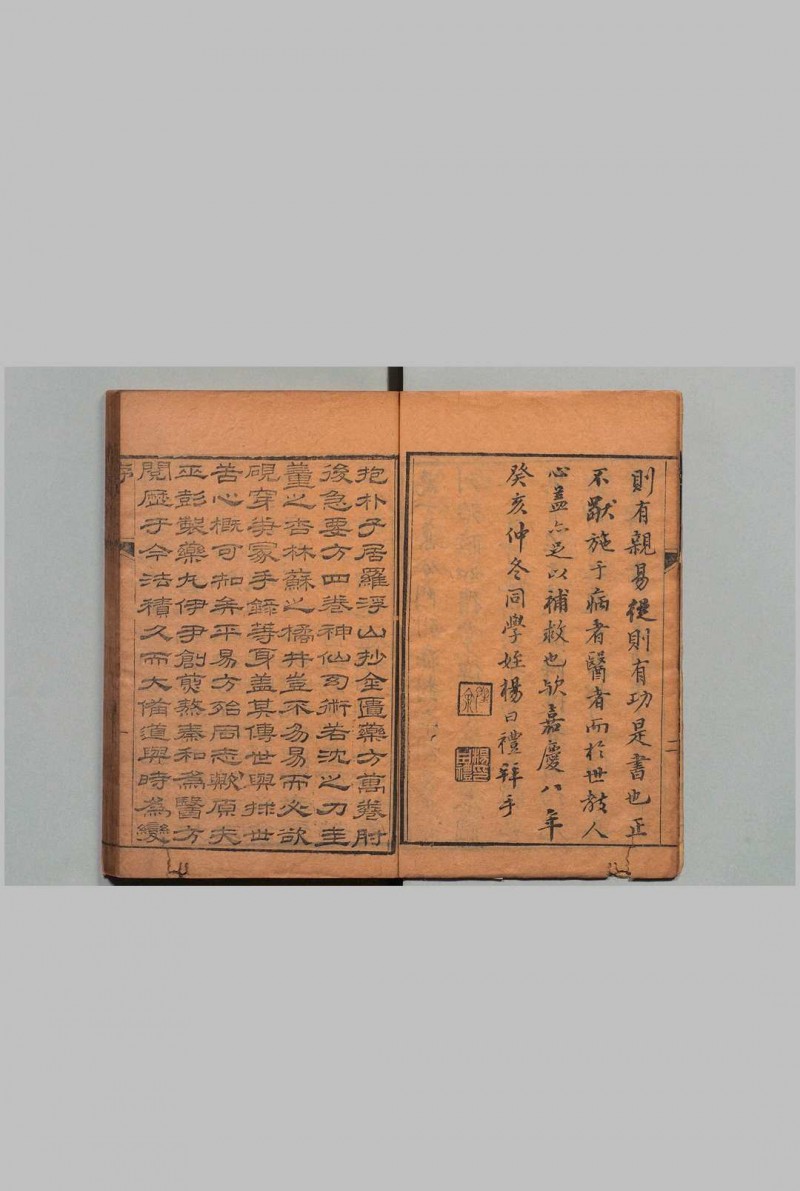 則有親易從則有功是書也正
不獸施于病者醫者而於世教人
心蓋亦足以補救也歟嘉慶八年
癸亥仲冬同學姪楊曰禮拜手
二
楊曰禮
抱朴子居羅浮山抄金匱藥方萬卷肘
後急要方四卷神仙幻術若沈之刀圭
董之杏林蘇之橘井豈不易易而必欲
硯穿筆冢手錄等身蓋其傳世與拯世
苦心概可知矣平易方殆同志歟原夫
巫彭製藥丸伊尹創煎熬秦和為醫方
閱歷于今法積久而大備道與時為變
序
一